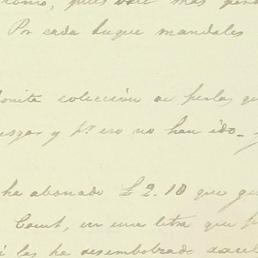 pues vale mas
Por cada buque mandales
bonita colección de perlas que
y pr eso no han ido.
ha abonado £2.10 que
Court, en una letra que
las ha desembolsado